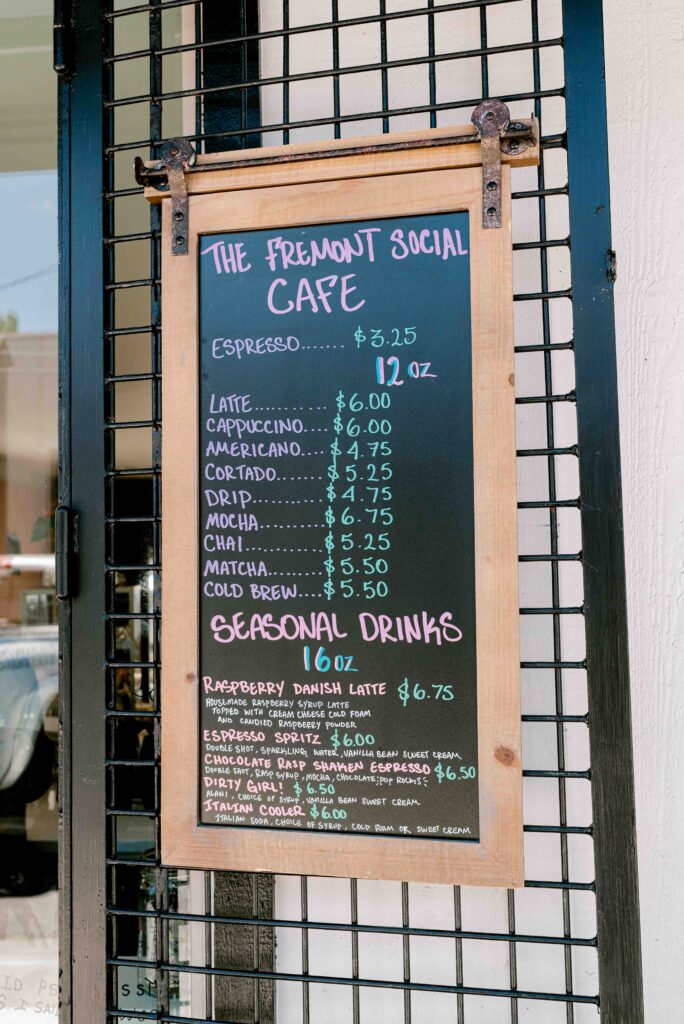 THE FREMONT SOCIAL
CAFE
ESPRESSO....... $3.25
12 OZ
LATTE............ $6.00
CAPPUCCINO.... $6.00
AMERICANO.... $4.75
CORTADO........ $5.25
DRIP........... $4.75
MOCHA.......... $6.75
CHAI............ $5.25
MATCHA........ $5.50
COLD BREW.... $5.50
SEASONAL DRINKS
16 OZ
RASPBERRY DANISH LATTE $6.75
HOUSEMADE RASPBERRY SYRUP LATTE
TOPPED WITH CREAM CHEESE COLD FOAM
AND CANDIED RASPBERRY POWDER
ESPRESSO SPRITZ $6.00
DOUBLE SHOT, SPARKLING WATER, VANILLA BEAN SWEET CREAM
CHOCOLATE RASP SHAKEN ESPRESSO $6.50
DOUBLE SHOT, RASP SYRUP, MOCHA, CHOCOLATE POP ROCKS
DIRTY GIRL! $6.50
ALANI, CHOICE OF SYRUP, VANILLA BEAN SWEET CREAM
ITALIAN COOLER $6.00
ITALIAN SODA, CHOICE OF SYRUP, COLD FOAM OR SWEET CREAM